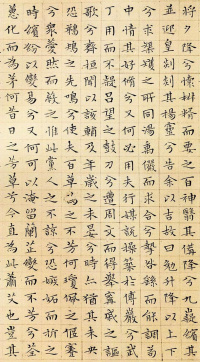 將夕降兮懷椒糈而要之百神翳其備降兮九疑繽其
並迎皇剡剡其揚靈兮告余以吉故曰勉升降以上下
兮求榘矱之所同湯禹儼而求合兮摯咎繇而能調苟
中情其好修兮又何必用夫行媒說操築於傅巖兮武
丁用而不疑呂望之鼓刀兮遭周文而得舉甯戚之謳
歌兮齊桓聞以該輔及年歲之未晏兮時亦猶其未央
恐鵜鴃之先鳴兮使夫百草為之不芳何瓊佩之偃蹇兮
衆薆然而蔽之惟此黨人之不諒兮恐嫉妒而折之
時繽紛以變易兮又何可以淹留蘭芷變而不芳兮荃
蕙化而為茅何昔日之芳草兮今直為此蕭艾也豈其